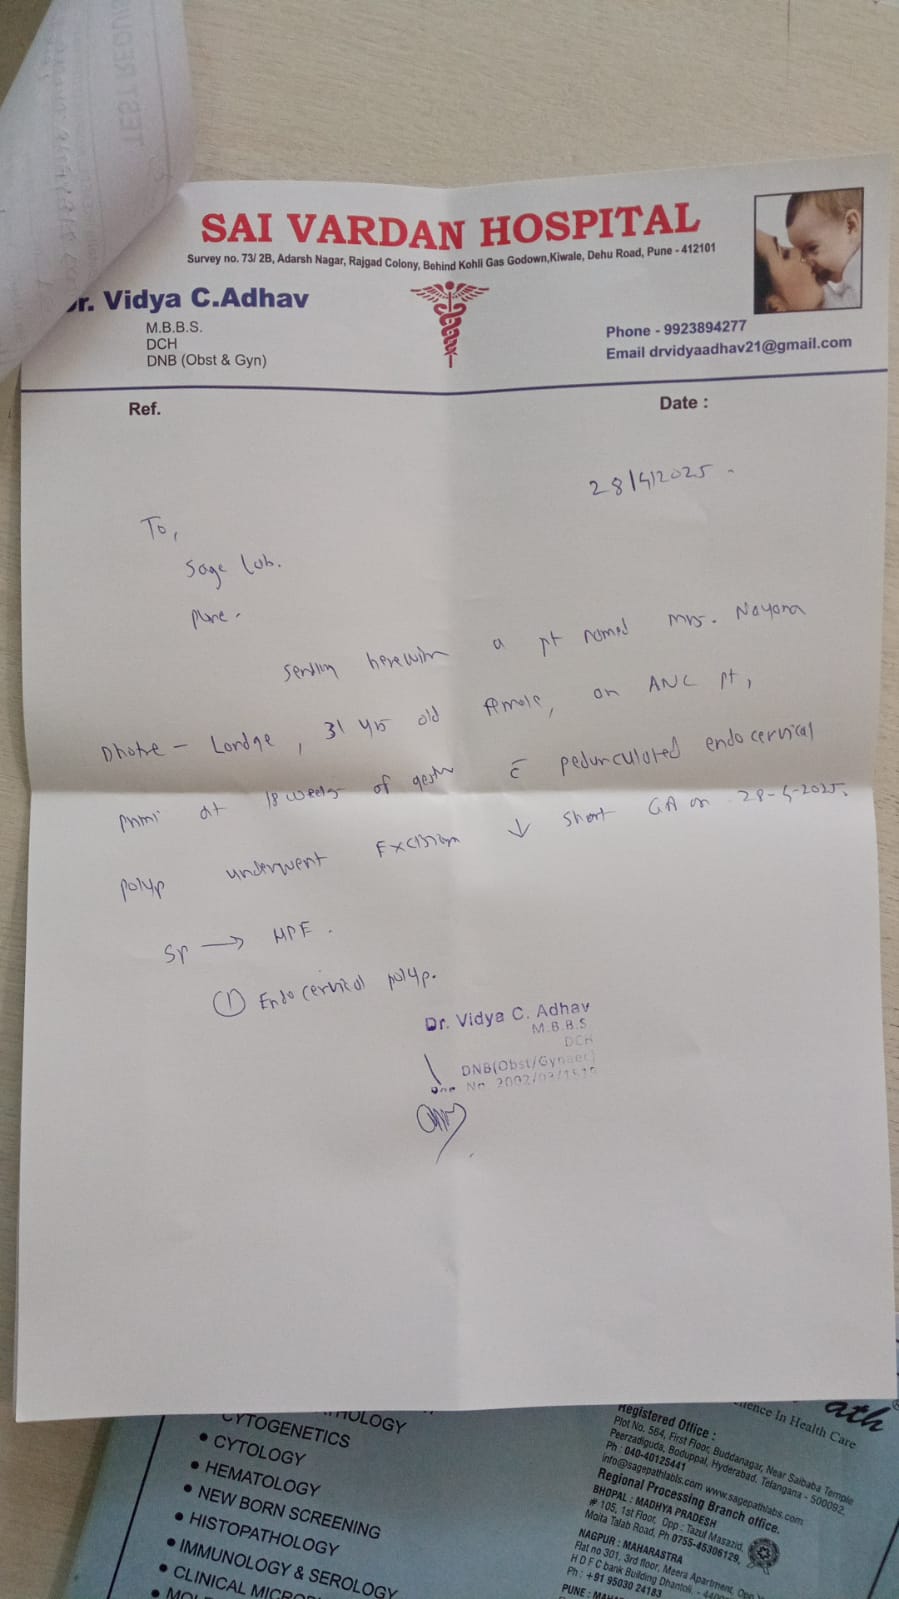 TEST REQU
SAI VARDAN HOSPITAL
Survey no. 73/ 2B, Adarsh Nagar, Rajgad Colony, Behind Kohli Gas Godown,Kiwale, Dehu Road, Pune - 412101
Dr. Vidya C.Adhav
M.B.B.S.
DCH
DNB (Obst & Gyn)
Phone - 9923894277
Email drvidyaadhav21@gmail.com
Ref.
Date :
28/4/2025
To,
Sage Lab.
Pune.
Sending herewith a pt named Mrs. Nayana
Dhotre - Londge, 31 yrs old female, an ANC pt,
Primi at 18 weeks of gestn c̄ pedunculated endocervical
polyp underwent Excision ↓ short GA on 28-4-2025.
Sp → HPE.
① Endocervical polyp.
Dr. Vidya C. Adhav
M.B.B.S
DCH
DNB(Obst/Gynaec)
CYTOGENETICS
• CYTOLOGY
• HEMATOLOGY
• NEW BORN SCREENING
• HISTOPATHOLOGY
• IMMUNOLOGY & SEROLOGY
• CLINICAL
ath
In Health Care
Registered Office :
Plot No. 564, First Floor, Buddanagar, Near Saibaba Temple
Peerzadiguda, Boduppal, Hyderabad. Telangana - 500092.
Ph : 040-40125441
info@sagepathlabls.com www.sagepathlabs.com
Regional Processing Branch office.
BHOPAL : MADHYA PRADESH
# 105, 1st Floor, Opp : Tazul Masazid,
Moita Talab Road, Ph 0755-45306129,
NAGPUR : MAHARASTRA
Flat no 301, 3rd floor, Meera Apartment, Opp
H D F C bank Building Dhantoli,
Ph : +91 95030 24183
PUNE :